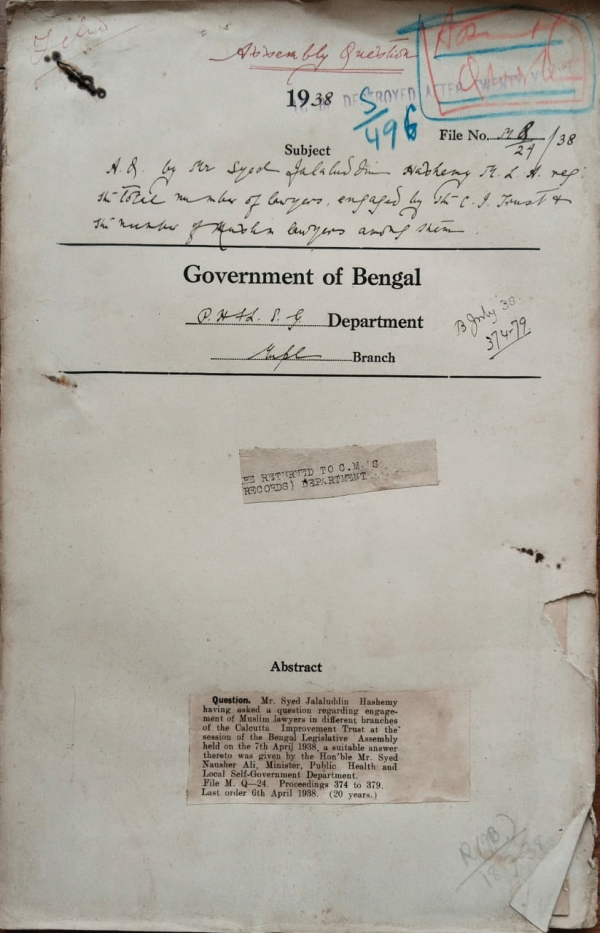 Assembly Question
1938
TO BE DESTROYED AFTER TWENTY
S/496
File No. M Q/24/38
Subject
A.Q. by Mr Syed Jalaluddin Hashemy M.L.A. reg:
the total number of lawyers, engaged by the C.I. Trust &
the number of Muslim lawyers among them.
Government of Bengal
P.H & L.S.G Department
Branch
B July 38
374-79.
BE RETURNED TO C.M.'S
RECORDS) DEPARTMENT
Abstract
Question. Mr. Syed Jalaluddin Hashemy
having asked a question regarding engage-
ment of Muslim lawyers in different branches
of the Calcutta Improvement Trust at the
session of the Bengal Legislative Assembly
held on the 7th April 1938, a suitable answer
thereto was given by the Hon'ble Mr. Syed
Nausher Ali, Minister, Public Health and
Local Self-Government Department.
File M. Q—24. Proceedings 374 to 379.
Last order 6th April 1938. (20 years.)